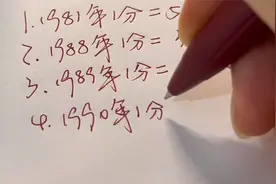 1.1981年1分=5
2.1988年1分=
3.1989年1分=
4.1990年1分